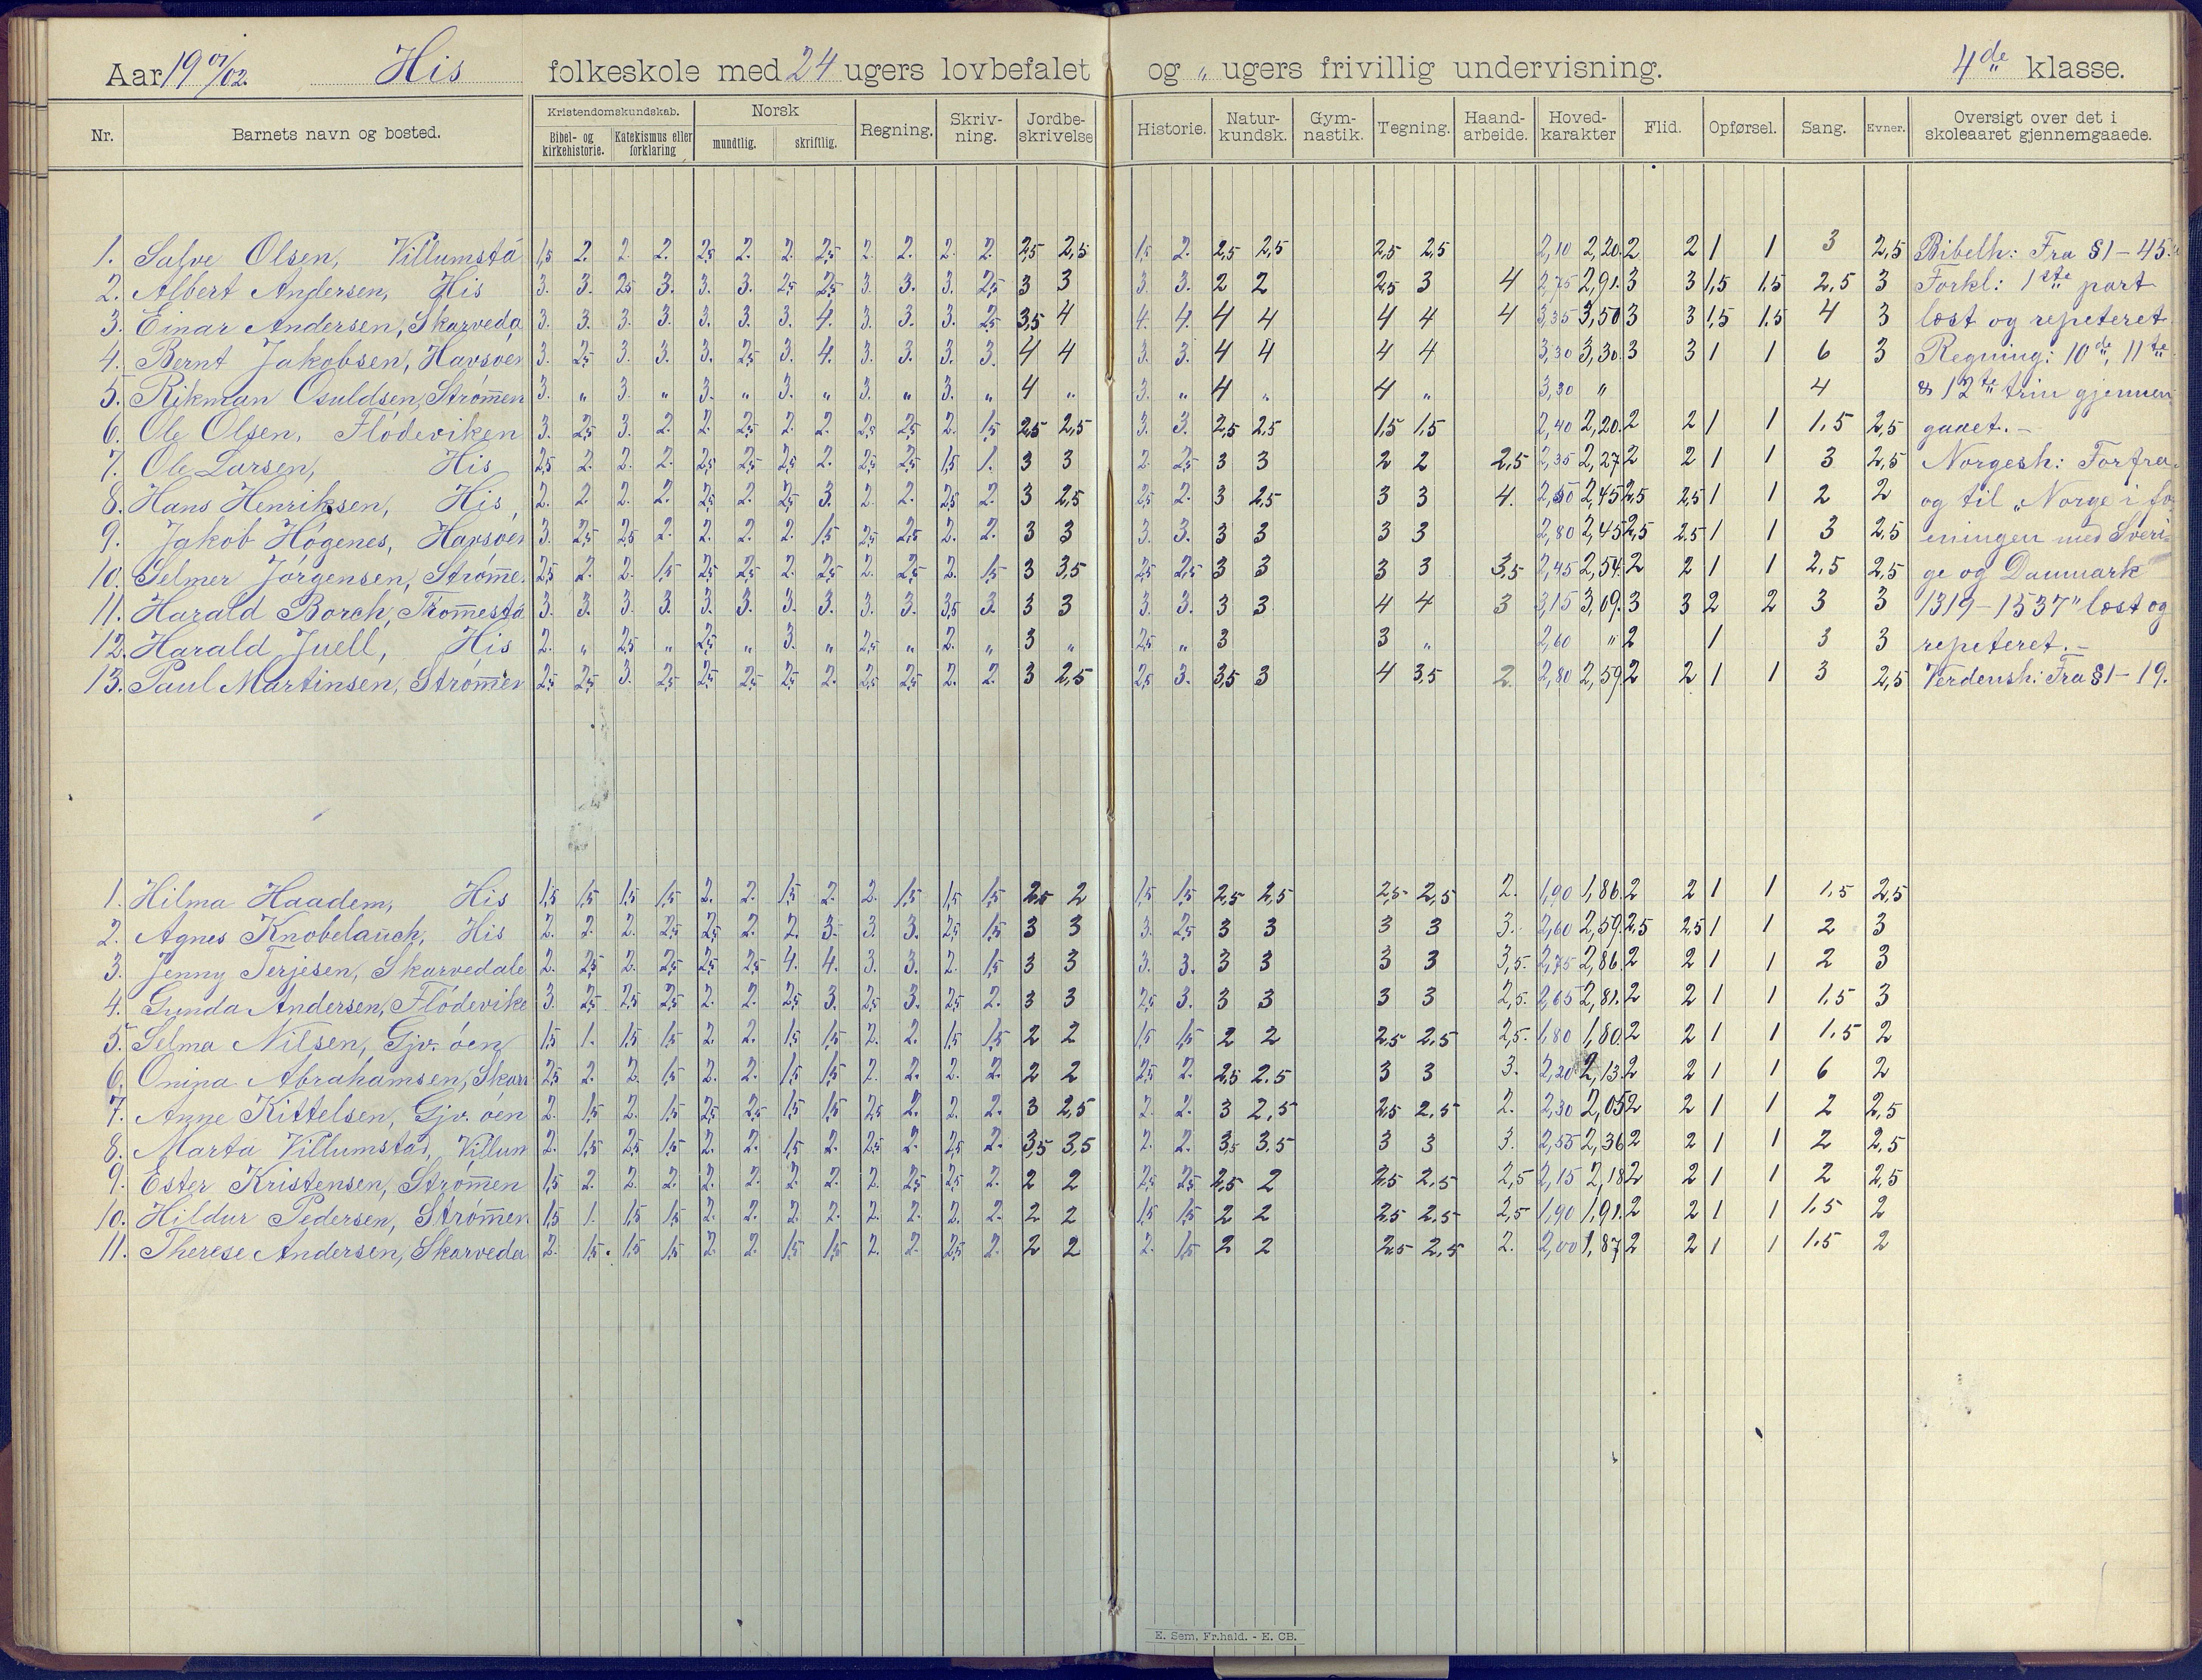 Aar 19 01/02. His folkeskole med 24 ugers lovbefalet og „ ugers frivillig undervisning. 4de klasse.
Nr. Barnets navn og bosted. Kristendomskundskab. Bibel- og kirkehistorie. Katekismus eller forklaring Norsk mundtlig. skriftlig. Regning. Skriv-ning. Jordbe-skrivelse Historie. Natur-kundsk. Gym-nastik. Tegning. Haand-arbeide. Hoved-karakter Flid. Opførsel. Sang. Evner. Oversigt over det i skoleaaret gjennemgaaede.
1. Salve Olsen, Villumsta 1,5 2. 2. 2. 2,5 2. 2. 2,5 2. 2. 2. 2. 2,5 2,5 1,5 2. 2,5 2,5 2,5 2,5 2,10 2,20. 2 2 1 1 3 2,5 Bibelh: Fra §1-45.
2. Albert Andersen, His 3. 3. 2,5 3. 3. 3. 2,5 2,5 3. 3. 3. 2,5 3 3 3. 3. 2 2 2,5 3 4 2,75 2,91. 3 3 1,5 1,5 2,5 3 Forkl: 1ste part
3. Einar Andersen, Skarveda 3. 3. 3. 3. 3. 3. 3. 4. 3. 3. 3. 2,5 3,5 4 4. 4. 4 4 4 4 4 3,35 3,50 3 3 1,5 1,5 4 3 læst og repeteret
4. Bernt Jakobsen, Havsøen 3. 2,5 3. 3. 3. 2,5 3. 4. 3. 3. 3. 3. 4 4 3. 3. 4 4 4 4 3,30 3,30. 3 3 1 1 6 3 Regning: 10de, 11te
5. Rikman Osuldsen, Strømen 3. „ 3. „ 3. „ 3. „ 3. „ 3. „ 4 „ 3. „ 4 „ 4 „ 3,30 „ 4 & 12te trin gjennem
6. Ole Olsen, Flödeviken 3. 2,5 3. 2. 2. 2,5 2. 2. 2,5 2,5 2. 1,5 2,5 2,5 3. 3. 2,5 2,5 1,5 1,5 2,40 2,20. 2 2 1 1 1,5 2,5 gaaet. -
7. Ole Larsen, His 2,5 2. 2. 2. 2,5 2,5 2,5 2. 2,5 2,5 1,5 1. 3 3 2. 2,5 3 3 2 2 2,5 2,35 2,27 2 2 1 1 3 2,5 Norgesh: Forfra
8. Hans Henriksen, His, 2. 2 2. 2. 2,5 2. 2,5 3. 2. 2. 2,5 2. 3 2,5 2,5 2. 3 2,5 3 3 4. 2,50 2,45 2,5 2,5 1 1 2 2 og til „Norge i fo-
9. Jakob Högenes, Havsøen 3. 2,5 2,5 2. 2. 2. 2. 1,5 2,5 2,5 2. 2. 3 3 3. 3. 3 3 3 3 2,80 2,45 2,5 2,5 1 1 3 2,5 eningen med Sveri-
10. Selmer Jörgensen, Strøme. 2,5 2. 2. 1,5 2,5 2,5 2. 2,5 2. 2,5 2. 1,5 3 3,5 2,5 2,5 3 3 3 3 3,5 2,45 2,54. 2 2 1 1 2,5 2,5 ge og Danmark
11. Harald Borch, Tromesta 3. 3. 3. 3. 3. 3. 3. 3. 3. 3. 3,5 3. 3 3 3. 3. 3 3 4 4 3 3,15 3,09. 3 3 2 2 3 3 1319-1537" læst og
12. Harald Juell, His 2. „ 2,5 „ 2,5 „ 3. „ 2,5 „ 2. „ 3 „ 2,5 „ 3 3 „ 2,60 „ 2 1 3 3 repeteret. -
13. Paul Martinsen, Strömen 2,5 2,5 3. 2,5 2,5 2,5 2,5 2. 2,5 2,5 2. 2. 3 2,5 2,5 3. 3,5 3 4 3,5 2. 2,80 2,59. 2 2 1 1 3 2,5 Verdensh: Fra §1-19.
1. Hilma Haadem, His 1,5 1,5 1,5 1,5 2. 2. 1,5 2. 2. 1,5 1,5 1,5 2,5 2 1,5 1,5 2,5 2,5 2,5 2,5 2. 1,90 1,86. 2 2 1 1 1,5 2,5
2. Agnes Knobelauch, His 2. 2. 2. 2,5 2,5 2. 2. 3. 3. 3. 2,5 1,5 3 3 3. 2,5 3 3 3 3 3. 2,60 2,59. 2,5 2,5 1 1 2 3
3. Jenny Terjesen, Skarvedale 2. 2,5 2. 2,5 2,5 2,5 4. 4. 3. 3. 2. 1,5 3 3 3. 3. 3 3 3 3 3,5. 2,75 2,86. 2 2 1 1 2 3
4. Gunda Andersen, Flödevike 3. 2,5 2,5 2,5 2. 2. 2,5 3. 2,5 3. 2,5 2. 3 3 2,5 3. 3 3 3 3 2,5. 2,65 2,81. 2 2 1 1 1,5 3
5. Selma Nilsen, Gjv. öen 1,5 1. 1,5 1,5 2. 2. 1,5 1,5 2. 2. 1,5 1,5 2 2 1,5 1,5 2 2 2,5 2,5 2,5. 1,80 1,80. 2 2 1 1 1,5 2
6. Onina Abrahamsen, Skarv 2,5 2. 2. 1,5 2. 2. 1,5 1,5 2. 2. 2. 2. 2 2 2,5 2. 2,5 2,5 3 3 3. 2,20 2,13. 2 2 1 1 6 2
7. Anne Kittelsen, Gjv. öen 2. 1,5 2. 1,5 2,5 2,5 1,5 1,5 2,5 2. 2. 2. 3 2,5 2. 2. 3 2,5 2,5 2,5 2. 2,30 2,05 2 2 1 1 2 2,5
8. Marta Villumstad, Villum 2. 1,5 2,5 1,5 2. 2. 1,5 2. 2,5 2. 2,5 2. 3,5 3,5 2. 2. 3,5 3,5 3 3 3. 2,55 2,36 2 2 1 1 2 2,5
9. Ester Kristensen, Strømen 1,5 2. 2. 2. 2. 2. 2. 2. 2. 2,5 2,5 2. 2 2 2,5 2,5 2,5 2 2,5 2,5 2,5 2,15 2,18 2 2 1 1 2 2,5
10. Hildur Pedersen, Strømen 1,5 1. 1,5 1,5 2. 2. 2. 2. 2. 2. 2. 2. 2 2 1,5 1,5 2 2 2,5 2,5 2,5 1,90 1,91. 2 2 1 1 1,5 2
11. Therese Andersen, Skarveda 2. 1,5. 1,5 1,5 2. 2. 1,5 1,5 2. 2. 2,5 2. 2 2 2. 1,5 2 2 2,5 2,5 2. 2,00 1,87 2 2 1 1 1,5 2
E. Sem, Fr.hald. - E. CB.